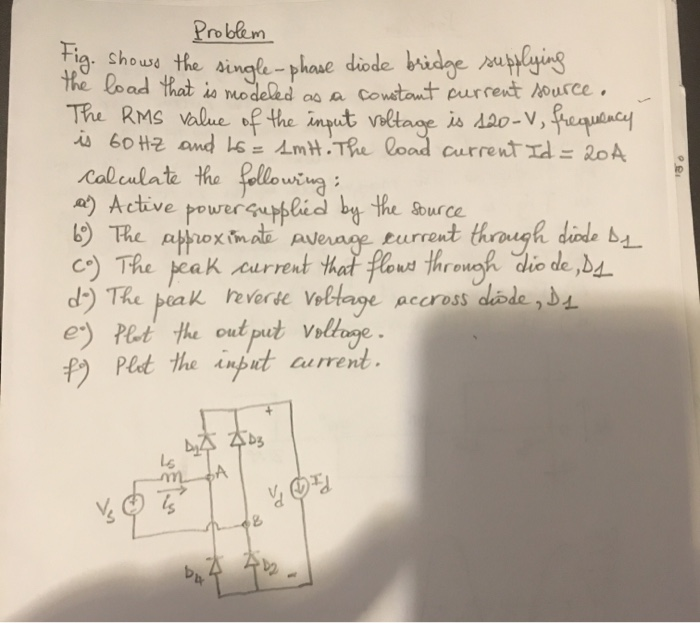 Problem
Fig. shows the single-phase diode bridge supplying
the load that is modeled as a constant current source.
The RMS value of the input voltage is 120-V, frequency
is 60 HZ and Ls = 1mH. The load current Id = 20A
calculate the following:
a°) Active power supplied by the source
b°) The approximate average current through diode D1
c°) The peak current that flows through diode, D1
d°) The peak reverse voltage accross diode, D1
e°) Plot the output voltage.
f) Plot the input current.
+
D1 D3
Ls
A
Vs is Vd Id
B
D4 D2 -